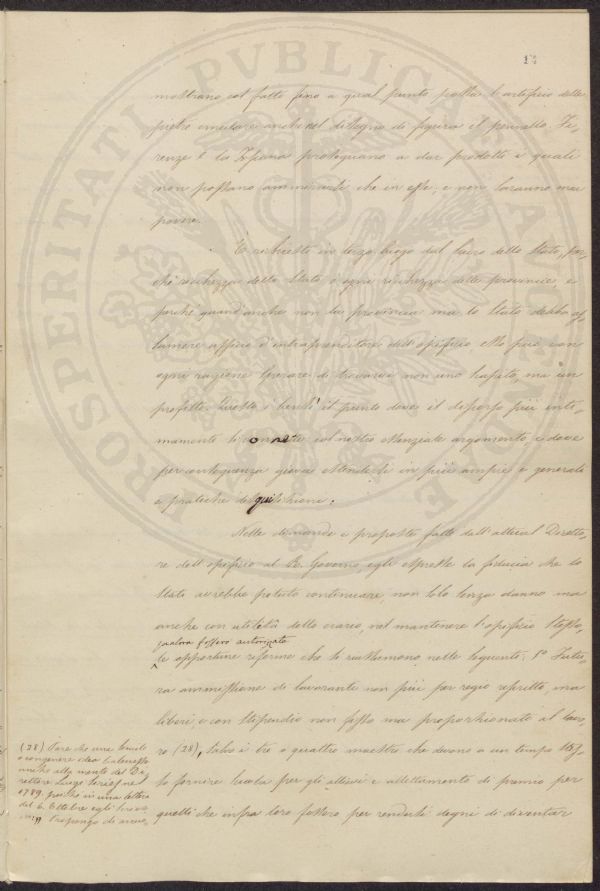 PROSPERITATI PVBLICAE AVGENDAE
mostrano col fatto fino a qual punto possa l'artificio delle
pietre emulare anche nel disegno di figura il pennello. Fi-
renze e la Toscana proteguano a dar prodotti i quali
non possano ammirarsi che in esse, e non saranno mai
povere.
È richiesto in terzo luogo dal lucro dello Stato, per
chè ricchezza dello Stato è ogni ricchezza delle provincie, e
perchè quand'anche non la provincia ma lo Stato debba as
sumere ufficio d'intraprenditore dell'opificio esso può con
ogni ragione sperare di trovarvi non uno scapito, ma un
profitto. Questo è bensì il punto dove il discorso più inti-
mamente si connette col nostro essenziale argomento, e dove
per conseguenza giova estendersi in più ampie e generali
e pratiche disquisizioni.
Nelle domande e proposte fatte dall'attual Dirетto-
re dell'opificio al R. Governo, egli espresse la fiducia che lo
Stato avrebbe potuto continuare, non solo senza danno ma
anche con utilità dello erario, nel mantenere l'opificio stesso,
qualora fossero autorizzate
le opportune riforme che si riassumono nelle seguenti: 1° Futu-
ra ammissione di lavoranti non più per regio rescritto, ma
liberi e con stipendio non fisso ma proporzionato al lavo-
ro (28), salvo i tre o quattro maestri che devono a un tempo stes-
so fornire scuola per gli allievi e allettamento di premio per
quelli che infra loro fossero per rendersi degni di diventar
(28) Pare che una simile
o congenere idea balenasse
anche alla mente del Di-
rettore Luigi Siriès nel
1789. poichè in una lettera
del 6. Ottobre egli scrive
va: „ Propongo di